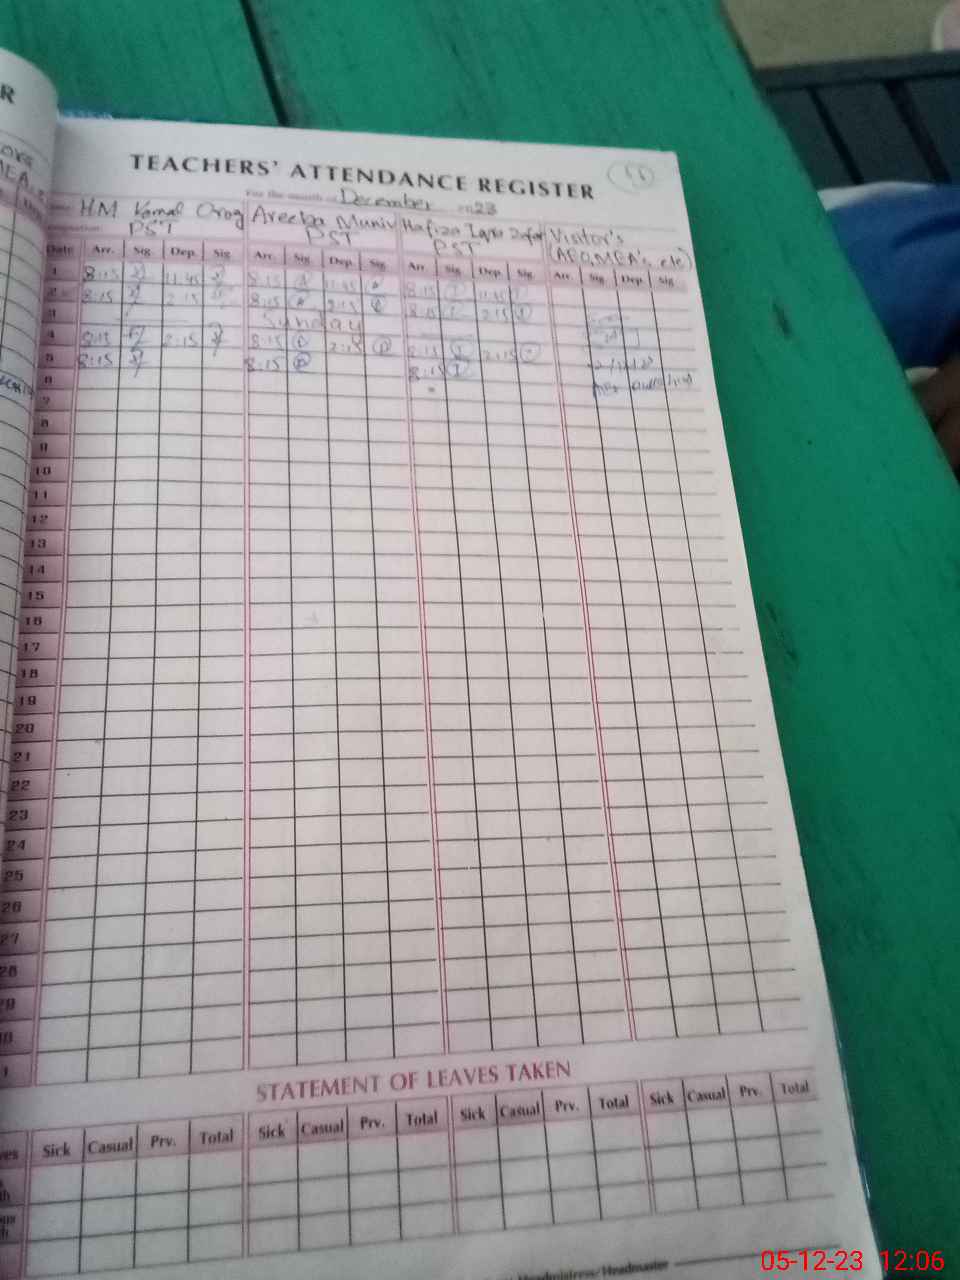 R
TEACHERS' ATTENDANCE REGISTER
For the month of December 2023
HM Kamal Orog Areeba Muniv Hafiza Iqra Zafar Visitor's
PST PST PST (AEO, MEA's, etc)
Date Arr. Sig. Dep. Sig. Arr. Sig. Dep. Sig. Arr. Sig. Dep. Sig. Arr. Sig. Dep. Sig.
1 8:15 11:45 8:15 11:45 8:15 11:45
2 8:15 2:15 8:15 2:15 8:15 2:15
3 Sunday
4 8:15 2:15 8:15 2:15 8:15 2:15
5 8:15 8:15 8:15
6
7
8
9
10
11
12
13
14
15
16
17
18
19
20
21
22
23
24
25
26
27
28
29
STATEMENT OF LEAVES TAKEN
Sick Casual Prv. Total Sick Casual Prv. Total Sick Casual Prv. Total Sick Casual Prv. Total
Headmistress/Headmaster
05-12-23 12:06